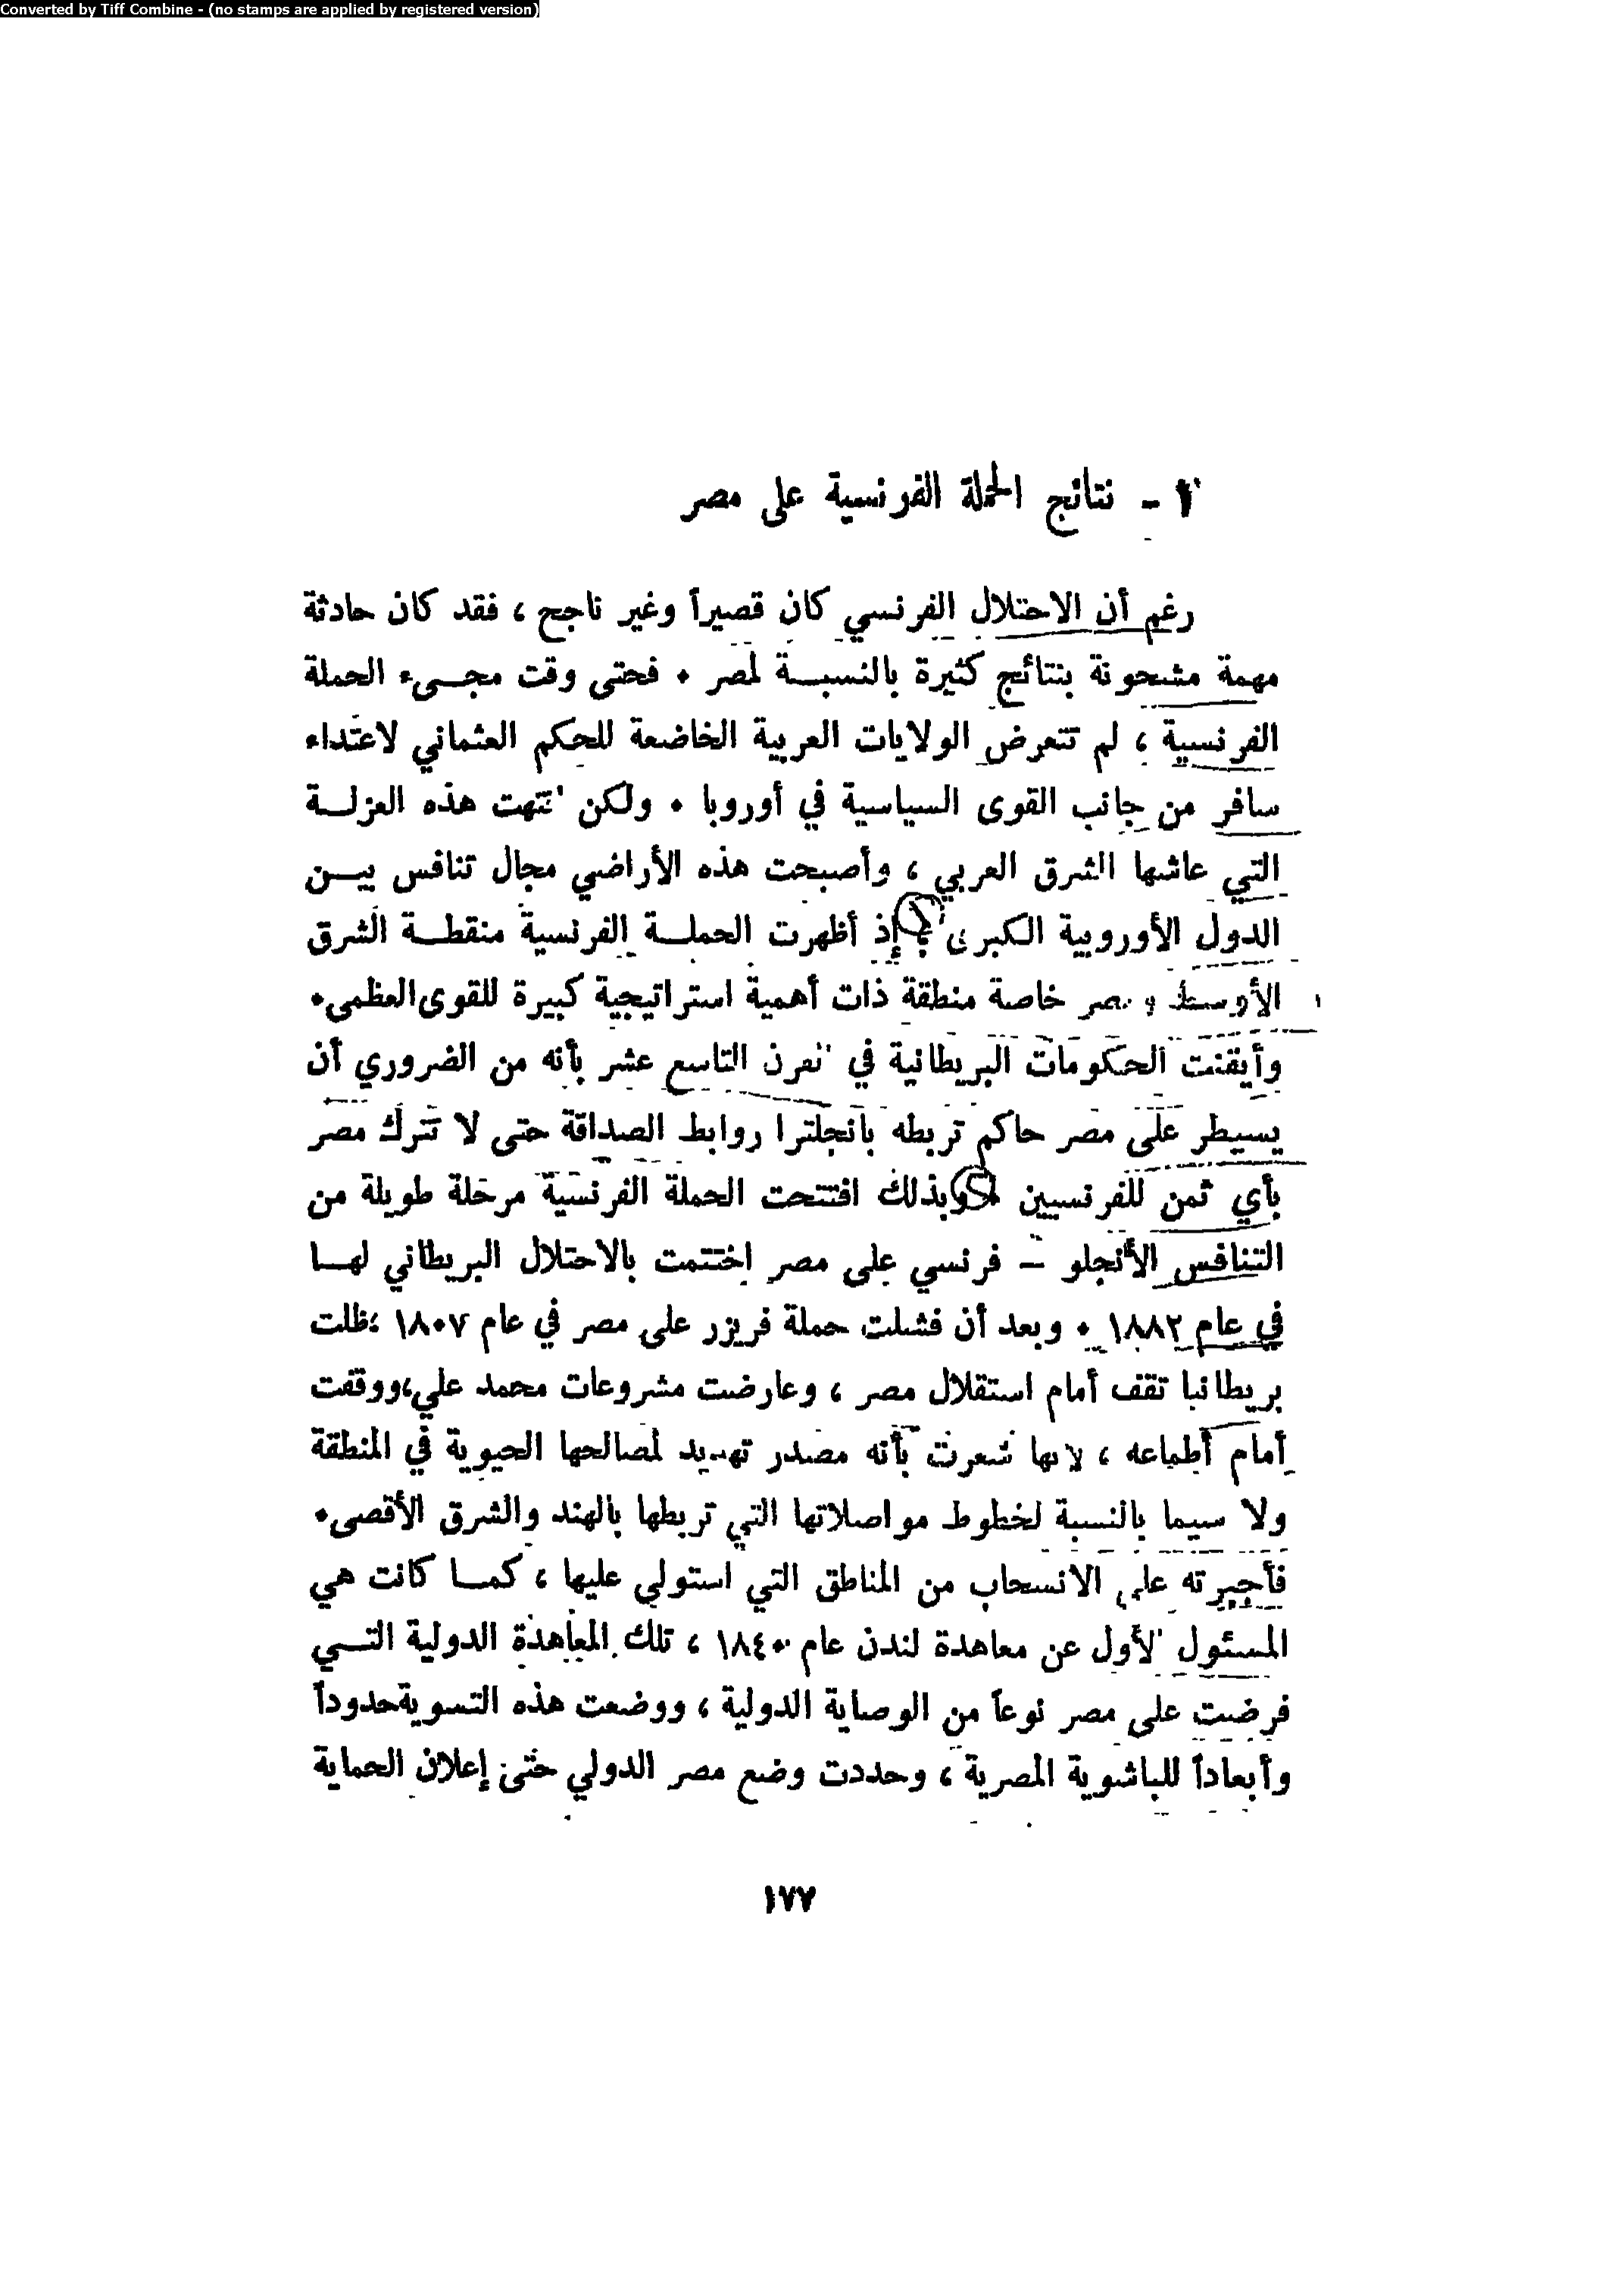 Converted by Tiff Combine - (no stamps are applied by registered version)
١ - نتائج الحملة الفرنسية على مصر
رغم أن الاحتلال الفرنسي كان قصيراً وغير ناجح ، فقد كان حادثة
مهمة مشحونة بنتائج كثيرة بالنسبـــة لمصر . فحتى وقت مجـــيء الحملة
الفرنسية ، لم تتعرض الولايات العربية الخاضعة للحكم العثماني لاعتداء
سافر من جانب القوى السياسية في أوروبا . ولكن انتهت هذه العزلـــة
التي عاشها الشرق العربي ، وأصبحت هذه الأراضي مجال تنافس بيـــن
الدول الأوروبية الكبرى ، إذ أظهرت الحملـــة الفرنسية منقطـــة الشرق
الأوسط ومصر خاصة منطقة ذات أهمية استراتيجية كبيرة للقوى العظمى.
وأيقنت الحكومات البريطانية في القرن التاسع عشر بأنه من الضروري أن
يسيطر على مصر حاكم تربطه بانجلترا روابط الصداقة حتى لا تترك مصر
بأي ثمن للفرنسيين وبذلك افتتحت الحملة الفرنسية مرحلة طويلة من
التنافس الأنجلو - فرنسي على مصر اختتمت بالاحتلال البريطاني لهـــا
في عام ١٨٨٢ . وبعد أن فشلت حملة فريزر على مصر في عام ١٨٠٧ ،ظلت
بريطانيا تقف أمام استقلال مصر ، وعارضت مشروعات محمد علي،ووقفت
أمام أطماعه ، لانها شعرت بأنه مصدر تهديد لمصالحها الحيوية في المنطقة
ولا سيما بالنسبة لخطوط مواصلاتها التي تربطها بالهند والشرق الأقصى.
فأجبرته على الانسحاب من المناطق التي استولى عليها ، كمـــا كانت هي
المسئول الأول عن معاهدة لندن عام ١٨٤٠ ، تلك المعاهدة الدولية التـــي
فرضت على مصر نوعاً من الوصاية الدولية ، ووضعت هذه التسوية حدوداً
وأبعاداً للباشوية المصرية ، وحددت وضع مصر الدولي حتى إعلان الحماية
١٧٧